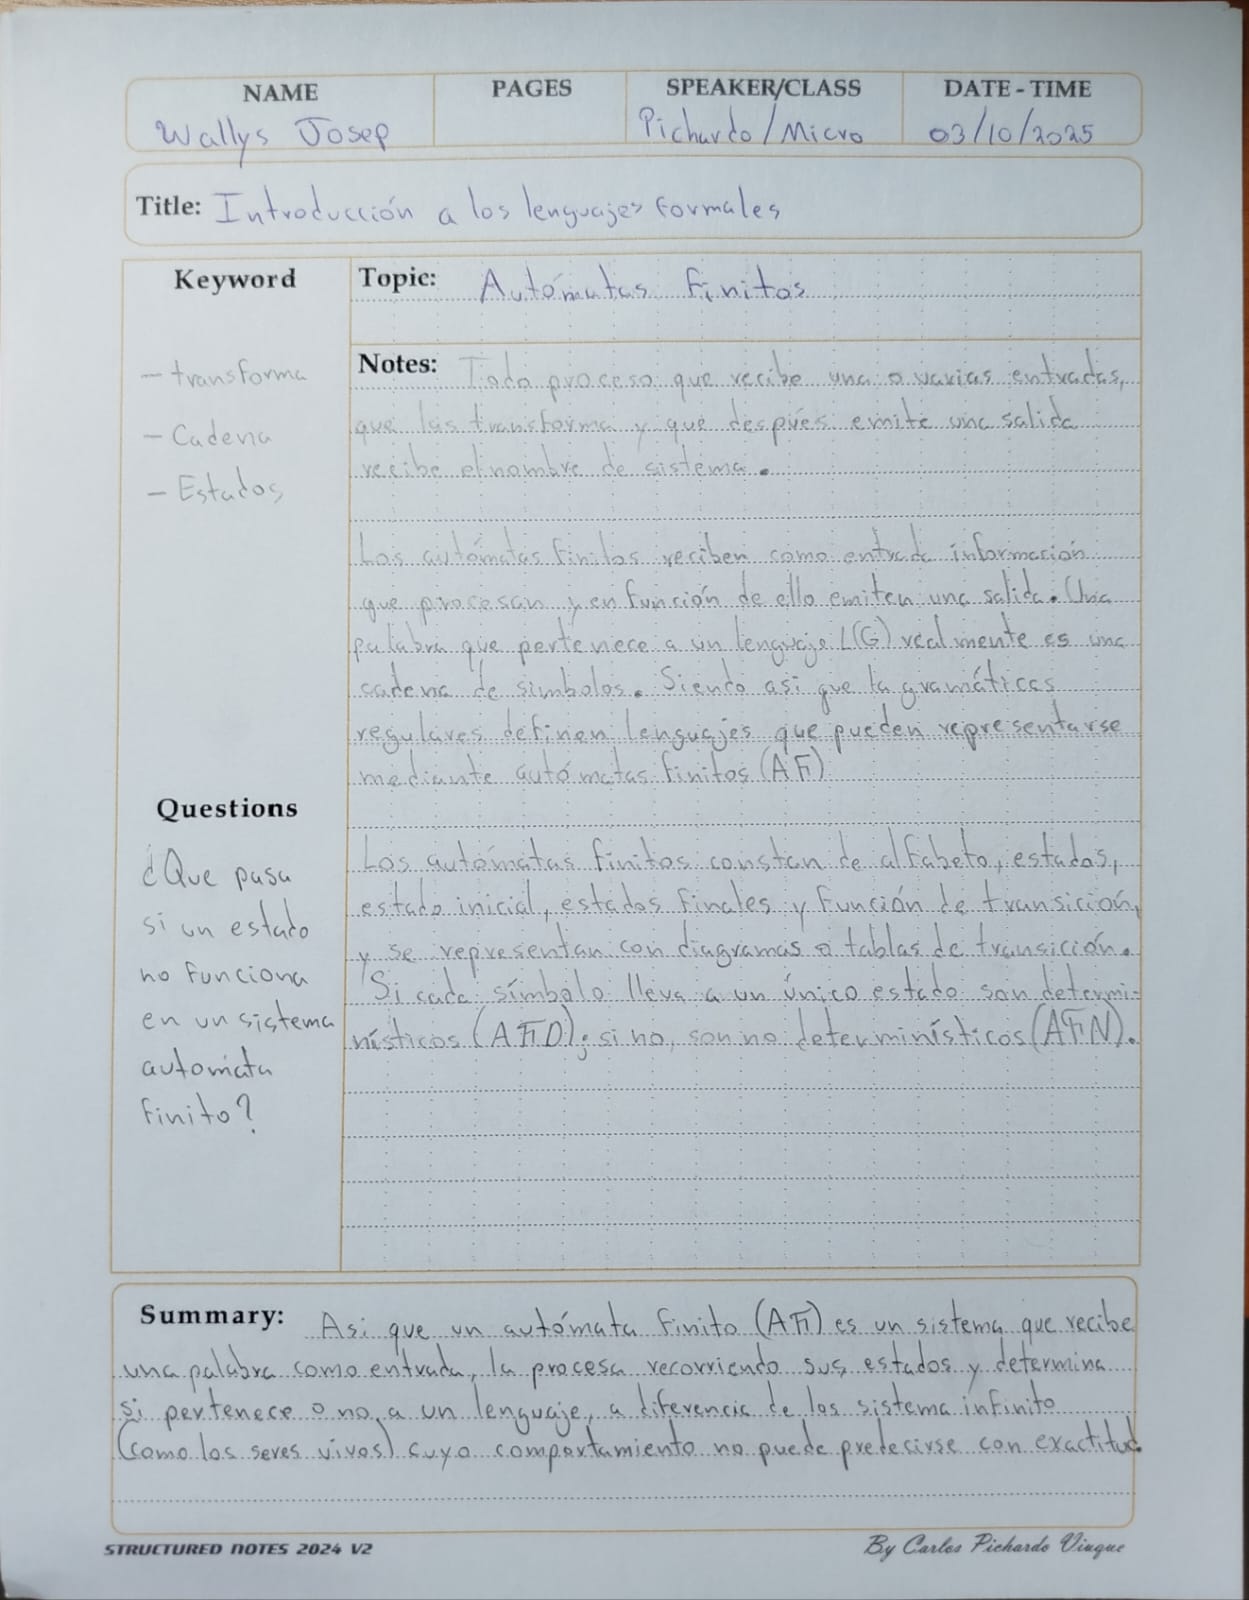 NAME PAGES SPEAKER/CLASS DATE - TIME
Wallys Josep Pichardo/Micro 03/10/2025
Title: Introducción a los lenguajes formales
Keyword
Topic: Autómatas finitos
- transforma
- Cadena
- Estados
Notes: Todo proceso que recibe una o varias entradas,
que las transforma y que después emite una salida
recibe el nombre de sistema.
Los autómatas finitos reciben como entrada información
que procesan y en función de ello emiten una salida. Una
palabra que pertenece a un lenguaje L(G) realmente es una
cadena de simbolos. Siendo asi que la gramáticas
regulares definen lenguajes que pueden representarse
mediante autómatas finitos (AFi)
Los autómatas finitos constan de alfabeto, estados,
estado inicial, estados finales y función de transición,
y se representan con diagramas o tablas de transición.
Si cada símbolo lleva a un único estado son determi-
nísticos (AFiD); si no, son no determinísticos (AFiN).
Questions
¿Que pasa
si un estado
no funciona
en un sistema
automáta
finito?
Summary: Asi que un autómata finito (AFi) es un sistema que recibe
una palabra como entrada, la procesa recorriendo sus estados y determina
si pertenece o no a un lenguaje, a diferencia de los sistema infinito
(como los seres vivos) cuyo comportamiento no puede predecirse con exactitud.
STRUCTURED NOTES 2024 V2
By Carlos Pichardo Viuque